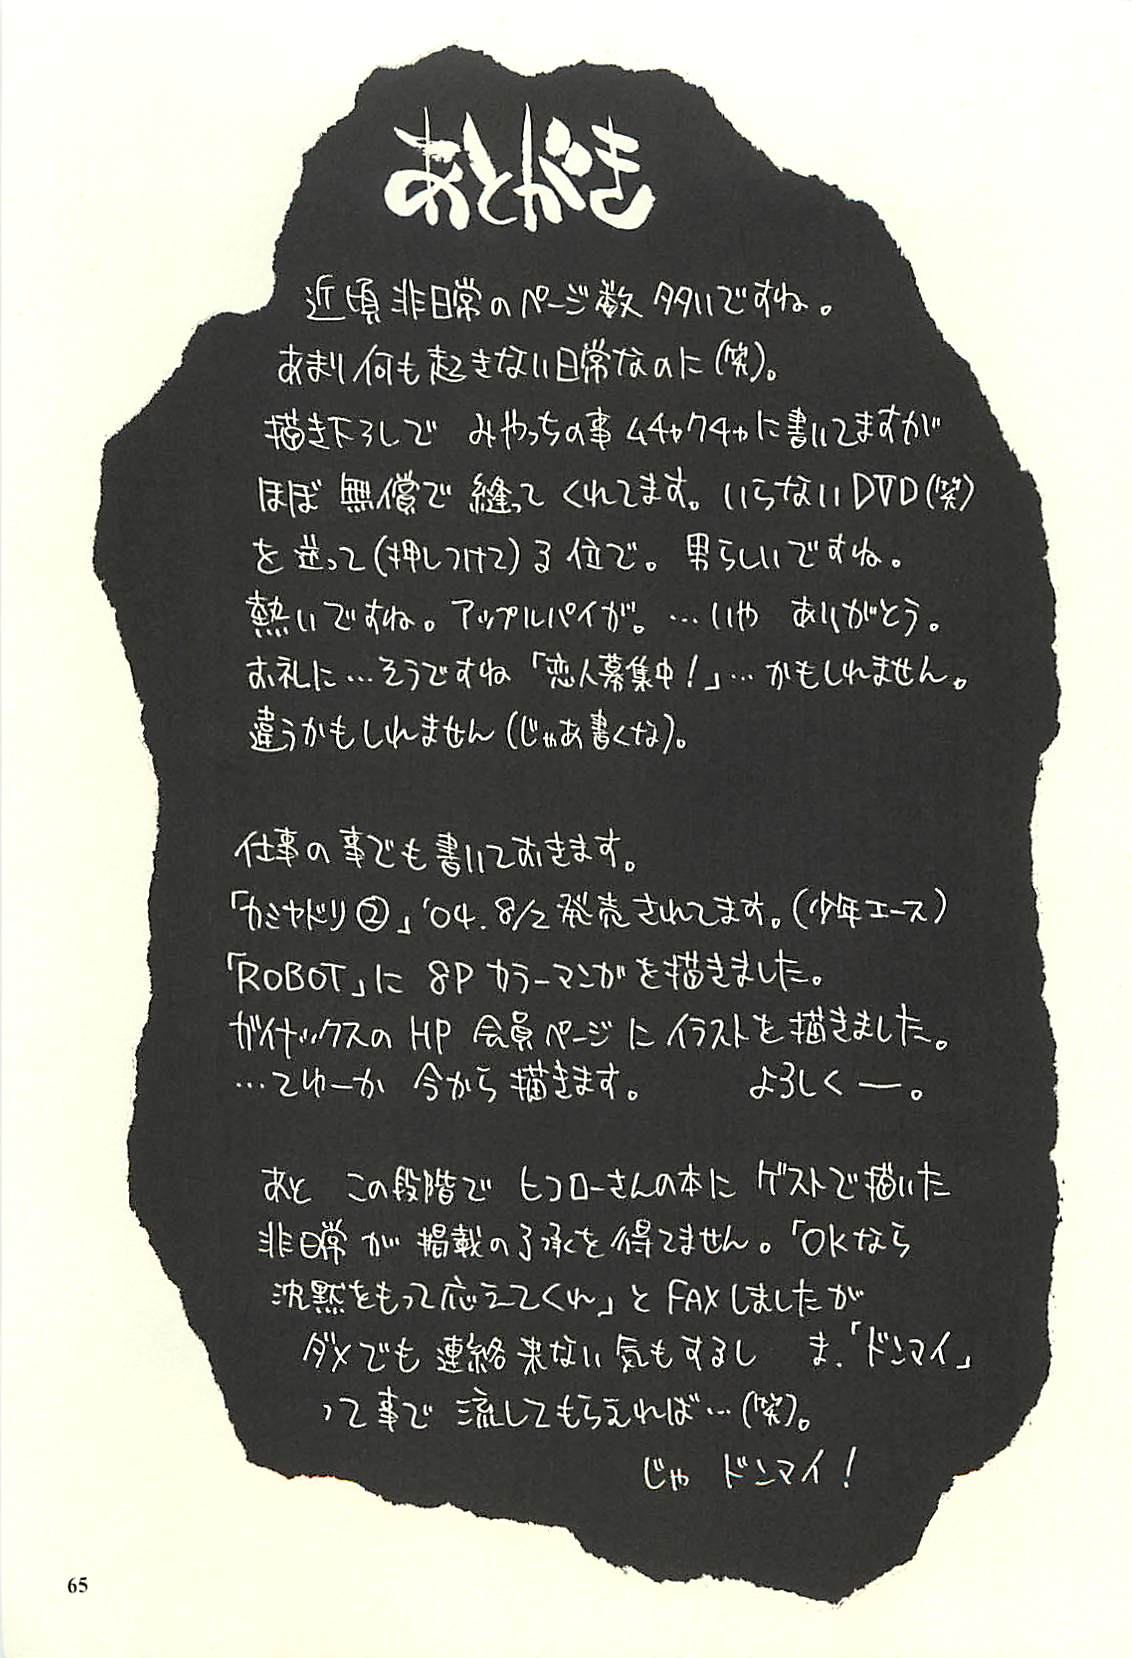 あとがき
近頃 非日常のページ数 多いですね。
あまり何も起きない日常なのに(笑)。
描き下ろしで みやっちの事ムチャクチャに書いてますが
ほぼ 無償で 縫って くれてます。いらないDVD(笑)
を 送って(押しつけて)る位で。男らしいですね。
熱いですね。アップルパイが。…いや ありがとう。
お礼に…そうですね「恋人募集中!」…かもしれません。
違うかもしれません(じゃあ書くな)。
仕事の事でも書いておきます。
「カミヤドリ②」'04.8/2発売されてます。(少年エース)
「ROBOT」に 8Pカラーマンガを描きました。
ガイナックスのHP 会員ページにイラストを描きました。
…てゆーか 今から描きます。 よろしくー。
あと この段階で ヒコローさんの本に ゲストで描いた
非日常が 掲載の了承を得てません。「OKなら
沈黙をもって応えてくれ」とFAXしましたが
ダメでも連絡来ない気もするし ま、「ドンマイ」
って事で 流してもらえれば…(笑)。
じゃ ドンマイ!
65